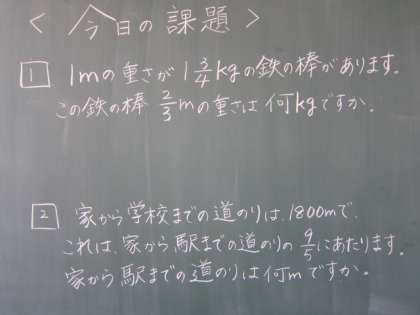 <今日の課題>
1 1mの重さが 1 3/4 kgの鉄の棒があります。
この鉄の棒 2/3 mの重さは何kgですか。
2 家から学校までの道のりは、1800mで、
これは、家から駅までの道のりの 9/5 にあたります。
家から駅までの道のりは何mですか。